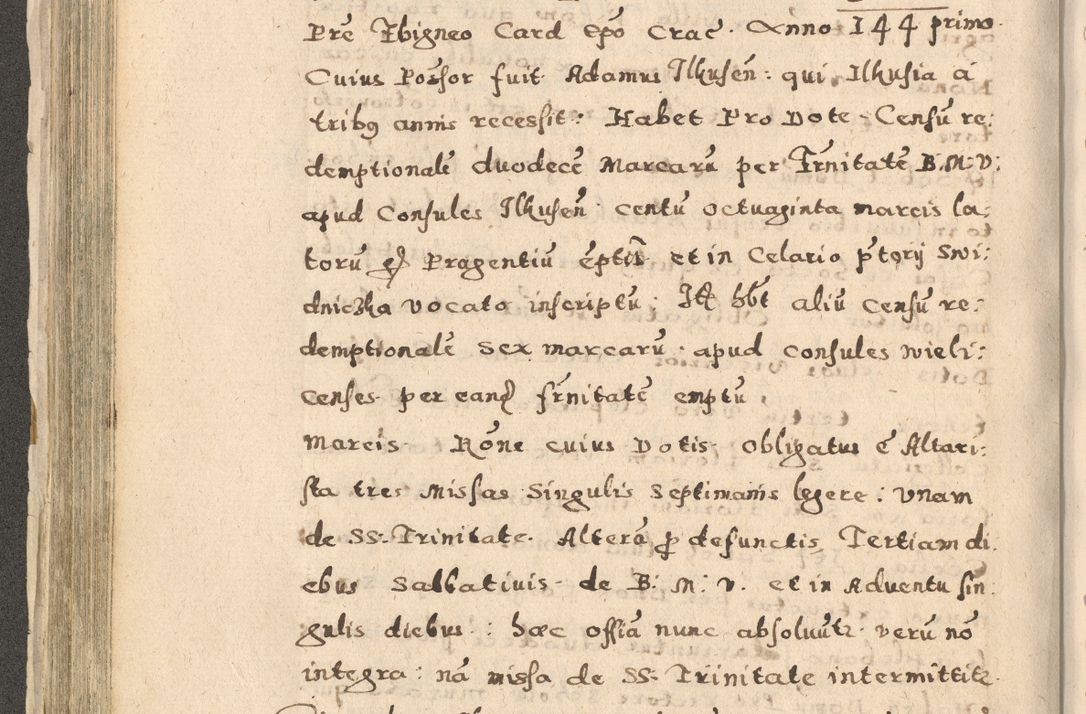 Pre͂ Zbigneo Card Epo͂ Crac͂. Anno 144 primo.
Cuius Posͤsor fuit Adamus Ilkuseñ: qui Ilkusia a
tribꝯ annis recessit: Habet Pro Dote Censũ re:
demptionalẽ duodecẽ Marcarũ per Frñitatẽ B.M.V:
apud Consules Ilkuseñ centũ octuaginta marcis la:
torũ Pragentiũ ẽptũ et in Celario ṕtorij Swi:
dniczka vocato inscriptũ. Itẽ hb̃t aliũ Censũ re:
demptionalẽ sex marcarũ apud consules wieli:
censes per eand frñitatẽ emptũ
marcis. Rõne cuius Dotis obligatus ẽ Altari:
sta tres Missas Singulis Septimanis legere: Unam
de SS: Trinitate. Alterã ꝓ defunctis, Tertiam di:
ebus Sabbativis de B: M: V. et in Adventu sin:
gulis diebus: hæc offiã nunc absoluũtr verũ nõ
integra: nã missa de SS: Trinitate intermittitr